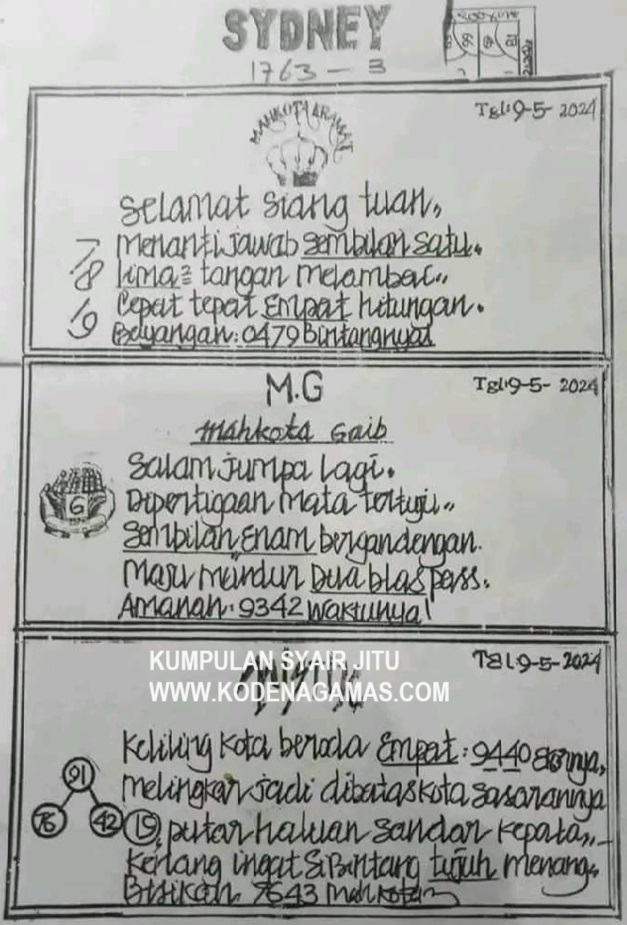 SYDNEY
1763 - 3
MAHKOTA KRAMAT
Tgl:9-5-2024
Selamat siang tuan,
Menanti jawab sembilan satu.
lima² tangan melambai,,
Cepat tepat Empat hitungan.
Bayangan: 0479 Bintangnya
M.G
Tgl:9-5-2024
Mahkota Gaib
G
Salam jumpa lagi.
Dipertigaan mata tertuju,,
Sembilan Enam bergandengan.
Maju mundur Dua blas pass.
Amanah: 9342 Waktunya!
KUMPULAN SYAIR JITU
WWW.KODENAGAMAS.COM
Tgl:9-5-2024
Keliling Kota beroda Empat: 9440
melingkar jadi dibatas kota sasarannya
91
76
42
15 putar haluan sandar kepala,,
Kenang ingat si Bintang tujuh menang,
Bisikan 7643 mahkota